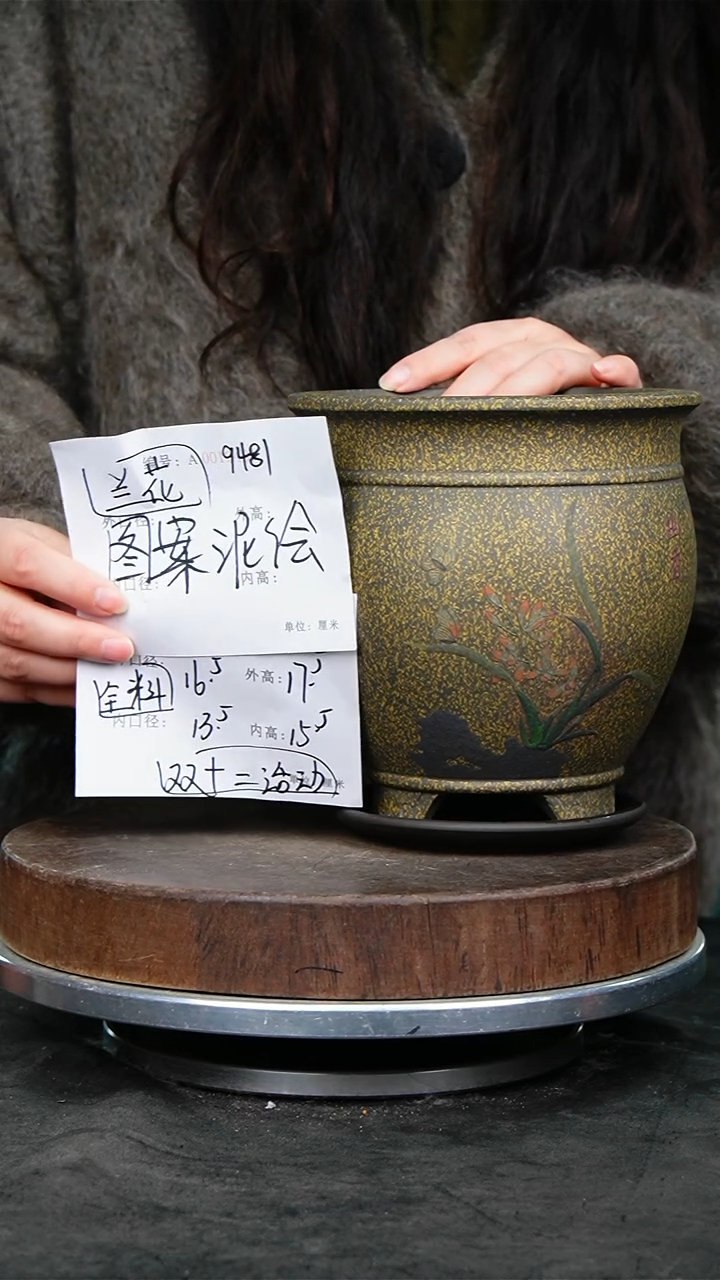 编号：A 00 9481
兰花
外高：
图案泥绘
内口径：
内高：
单位：厘米
口径：16.5
外高：17.5
全料
内口径：13.5
内高：15.5
双十二活动
厘米